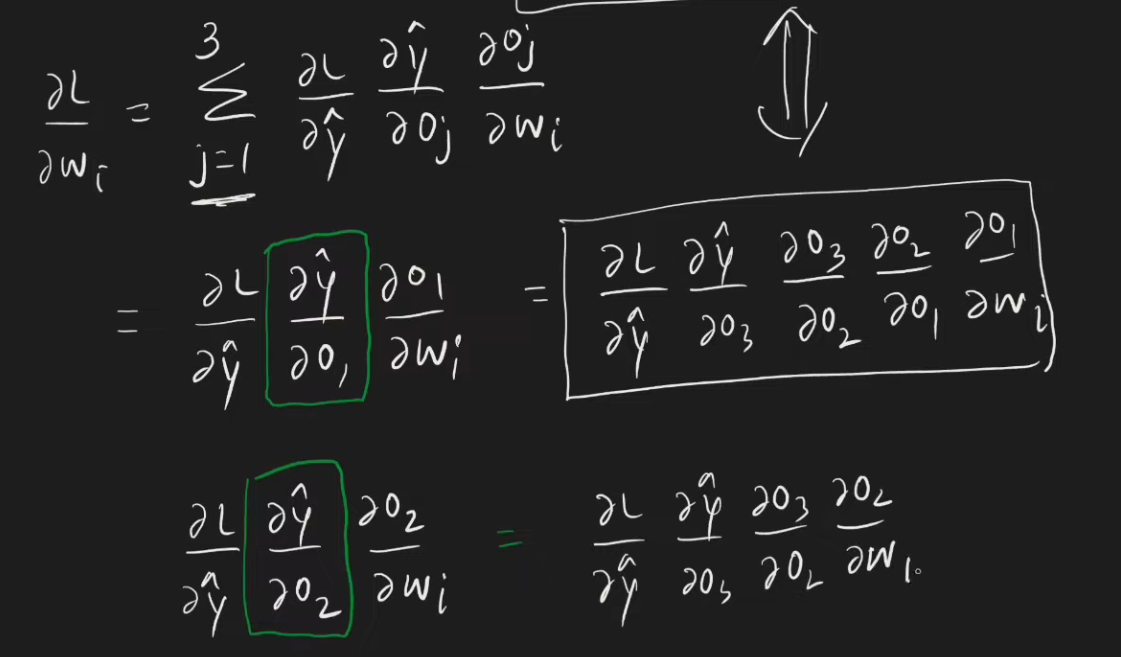 ∂L/∂w_i = Σ_{j=1}^{3} ∂L/∂ŷ ∂ŷ/∂O_j ∂O_j/∂w_i
= ∂L/∂ŷ ∂ŷ/∂O_1 ∂O_1/∂w_i = ∂L/∂ŷ ∂ŷ/∂O_3 ∂O_3/∂O_2 ∂O_2/∂O_1 ∂O_1/∂w_i
∂L/∂ŷ ∂ŷ/∂O_2 ∂O_2/∂w_i = ∂L/∂ŷ ∂ŷ/∂O_3 ∂O_3/∂O_2 ∂O_2/∂w_i